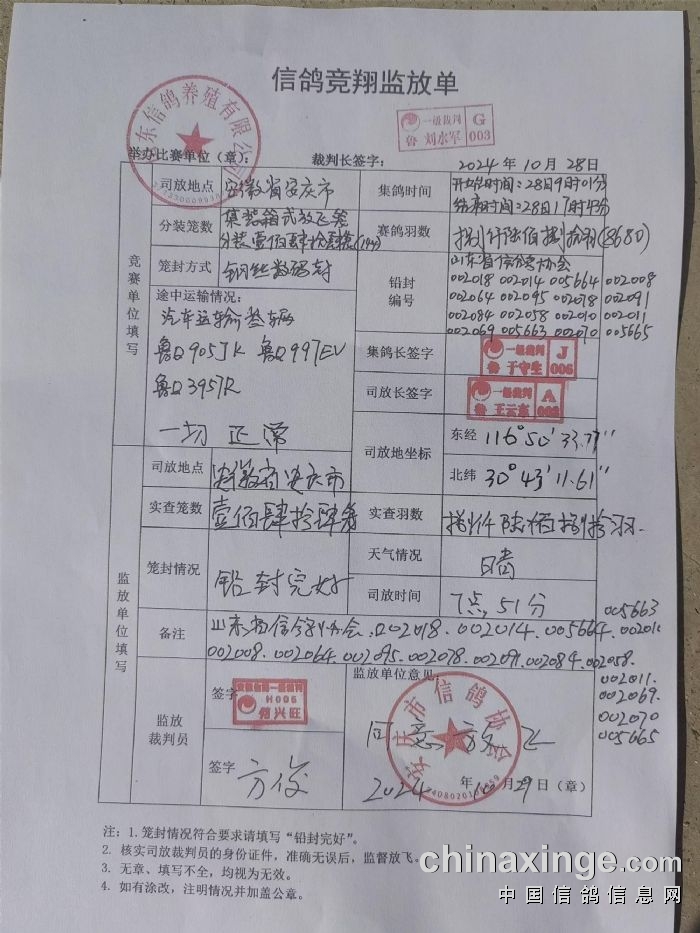 信鸽竞翔监放单
一级裁判 G
鲁 刘水军 003
东信鸽养殖有限公司
举办比赛单位(章): 裁判长签字: 2024年10月28日
竞赛单位填写
司放地点 安徽省安庆市 集鸽时间 开始时间:28日9时01分
结束时间:28日17时
分装笼数 集装箱式放飞笼 赛鸽羽数 捌仟陆佰捌拾羽(8680)
分装壹佰肆拾肆笼(144)
笼封方式 钢丝数码封 铅封编号 山东省信鸽协会
002018 002014 005664 002008
002064 002095 002078 002091
002084 002058 002010 002011
002069 005663 002070 005665
途中运输情况:
汽车运输叁辆
鲁Q905JK 鲁Q997EV
鲁Q3957R
一切正常
集鸽长签字 一级裁判 J
鲁 于守生 006
司放长签字 一级裁判 A
鲁 王云东 002
司放地坐标 东经 116°50'33.77"
北纬 30°43'11.61"
监放单位填写
司放地点 安徽省安庆市
实查笼数 壹佰肆拾肆笼 实查羽数 捌仟陆佰捌拾羽.
笼封情况 铅封完好 天气情况 晴
司放时间 7点51分
005663
备注 山东省信鸽协会.002018.002014.005664.
002008.002064.002095.002078.002091.002084.002058.
002011.
002069.
002070
005665
监放裁判员 签字 H006
兴旺
签字 方俊
监放单位意见:
同意放飞
安庆市信鸽协会
2024年10月29日(章)
注:1. 笼封情况符合要求请填写“铅封完好”。
2. 核实司放裁判员的身份证件,准确无误后,监督放飞。
3. 无章、填写不全,均视为无效。
4. 如有涂改,注明情况并加盖公章。
chinaxinge.com
中国信鸽信息网